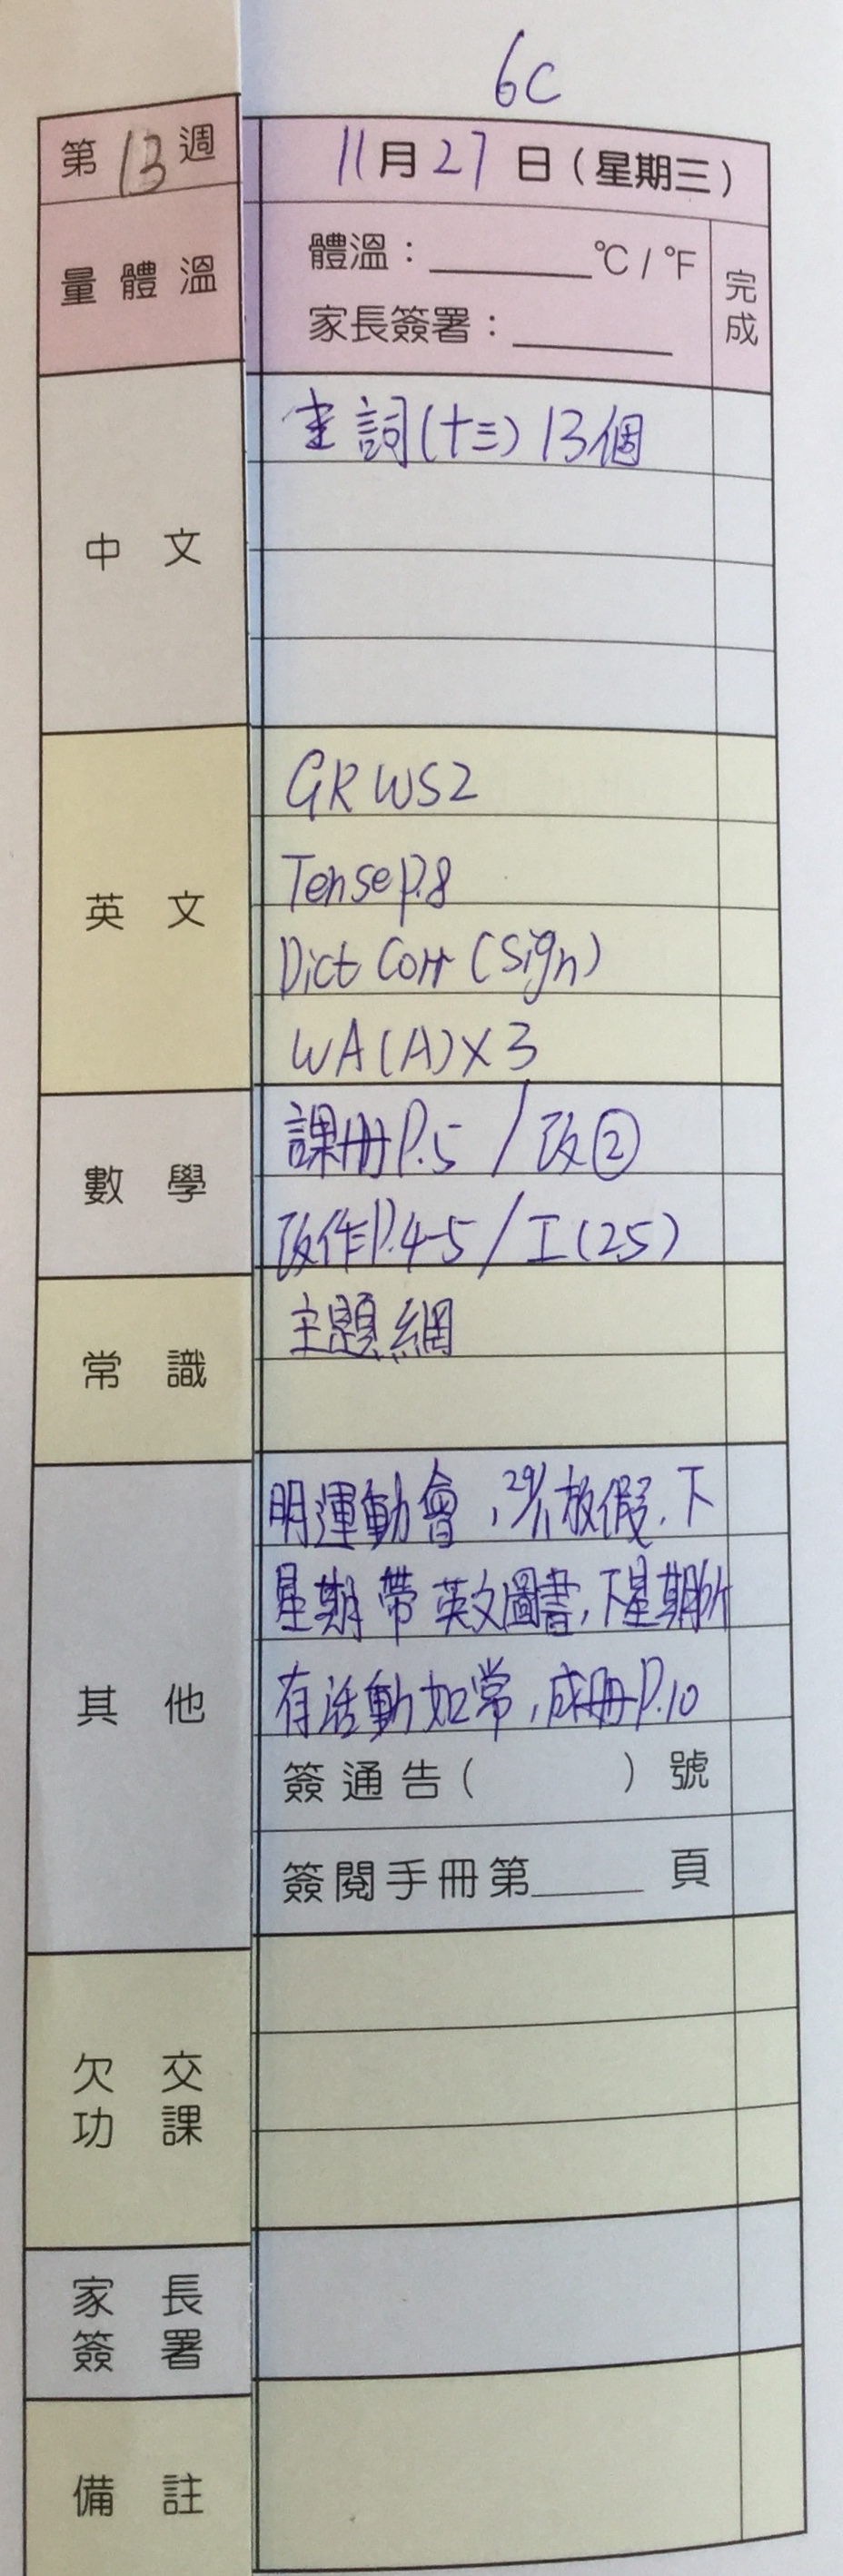 6C
第13週
11月27日(星期三)
量體溫
體溫:______°C/°F
完成
家長簽署:______
中文
詞(十三)13個
英文
GR WS2
Tense P.8
Dict Corr (Sign)
WA(A)X3
數學
課冊P.5 / 改②
改作P.4-5 / I(25)
常識
主題網
其他
明運動會,29/11放假,下
星期帶英文圖書,下星期所
有活動如常,成冊P.10
簽通告( )號
簽閱手冊第______頁
欠交
功課
家長
簽署
備註